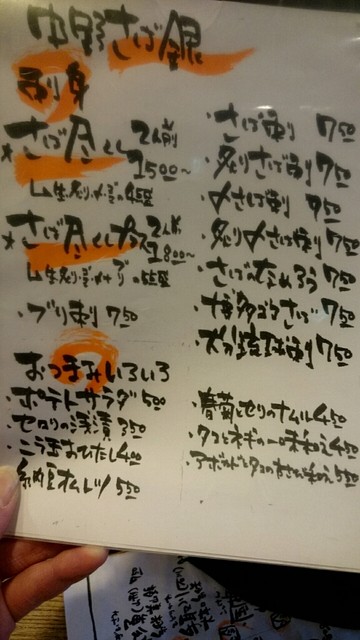 中野さば銀
刺身
★さば尽くし 2人前
1500~
★さば尽くし 2人前
1800~
・ブリ刺 750
・さば刺 750
・炙りさば刺 750
・〆さば刺 750
・炙り〆さば刺 750
・さばのなめろう 750
・博多ゴマさば 750
・大分琉球刺 750
おつまみいろいろ
・ポテトサラダ 500
・セロリの浅漬 350
・ニラ玉おひたし 400
・納豆オムレツ 550
・春菊とセリのナムル 450
・タコとネギの一味和え 450
・アボカドとタコのわさび和え 550